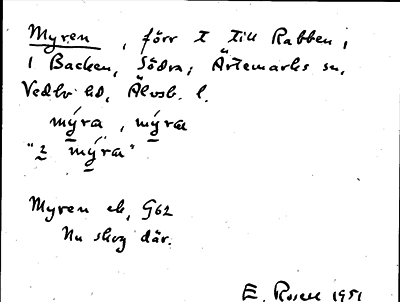 Myren, förr t till Rabben i
i Backen, Södra; Ärtemarks sn,
Vedbo hd, Älvsb. l.
mýra, mýræ
"2 mýræ"
Myren ek, G62
Nu skog där.
E. Rosell 1951